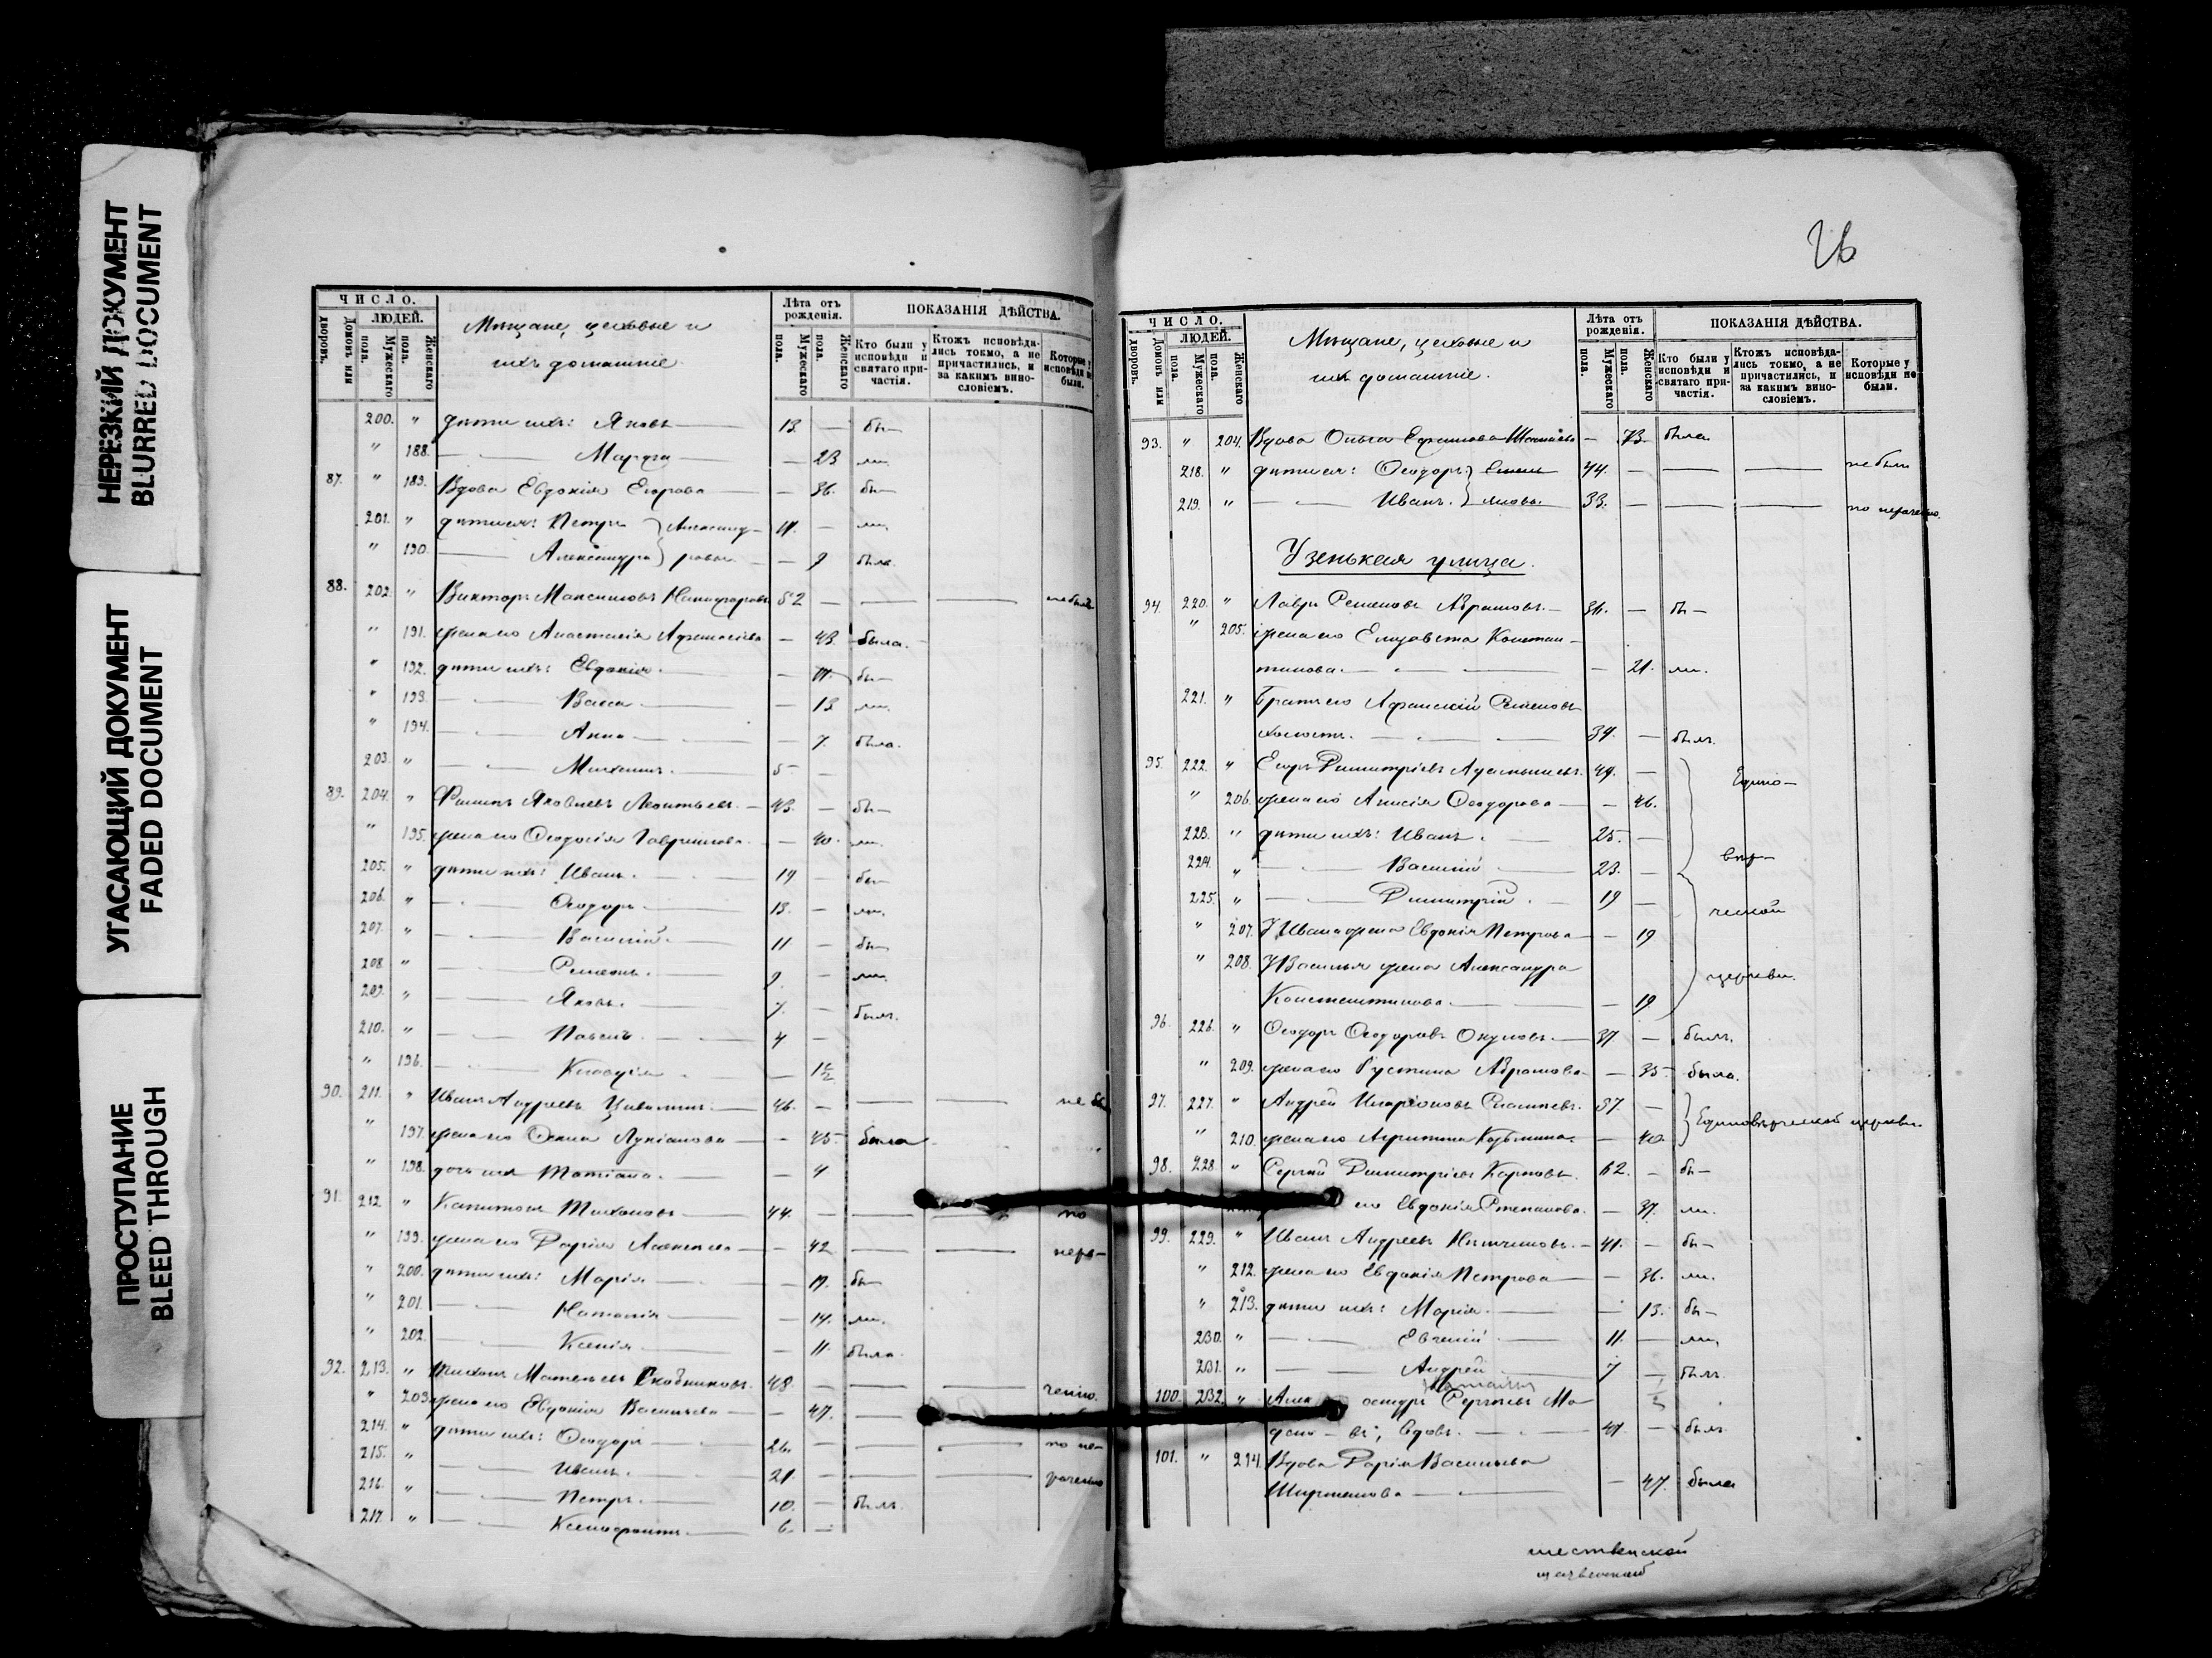 НЕРЕЗКИЙ ДОКУМЕНТ
BLURRED DOCUMENT
УГАСАЮЩИЙ ДОКУМЕНТ
FADED DOCUMENT
ПРОСТУПАНИЕ
BLEED THROUGH
ЧИСЛО.
ЛЮДЕЙ.
Домовъ или дворовъ.
Мужескаго пола.
Женскаго пола.
Мѣщане, цеховые и
ихъ домашніе.
Лѣта отъ рожденія.
Мужескаго пола.
Женскаго пола.
ПОКАЗАНІЯ ДѢЙСТВА.
Кто были у исповѣди и святаго причастія.
Ктожъ исповѣдались токмо, а не причастились, и за какимъ винословіемъ.
Которые у исповѣди не были.
200. " дѣти ихъ: Яковъ 13. — бы—
" 188. — Марѳа — 23 ли.
87. " 189. Вдова Евдокія Егорова — 36. бы—
201. " дѣти ея: Петръ } Александ- 11. — ли.
" 190. — Александра } ровы — 9 была.
88. 202. " Викторъ Максимовъ Никифоровъ 52 — — — не былъ
" 191. жена его Анастасія Аѳанасіева — 43. была.
" 192. дѣти ихъ: Евдокія — 17. бы—
" 193. — Васса — 13 ли.
" 194. — Анна — 7. была.
203. " — Михаилъ 5 —
89. 204. " Филипъ Яковлевъ Леонтьевъ 43. — бы—
" 195. жена его Ѳеодосія Гаврилова — 40. ли.
205. " дѣти ихъ: Иванъ 19 — бы—
206. " — Ѳеодоръ 13. — ли.
207. " — Василій 11 — бы—
208. " — Семенъ 9. — ли.
209. " — Яковъ. 7. — былъ.
210. " — Павелъ 4 —
" 196. — Клавдія — 1½
90. 211. " Иванъ Андреевъ 46. — — — не бы
" 197. жена его Лукіанова — 45 была
" 198. дочь ихъ Татіана. — 4
91. 212. " Капитонъ Тихоновъ 44. — — — по
" 199. жена его Дарія Алексѣева — 42 — — нера-
" 200. дѣти ихъ: Марія — 17. бы—
" 201. — Наталія — 14. ли.
" 202. — Ксенія — 11. была.
92. 213. " Тихонъ Матвѣевъ Скобниковъ 48. — — — ченію.
" 203. жена его Евдокія Васильева — 47. —
214. " дѣти ихъ: Ѳеодоръ 26. — — — по не-
215. " — Иванъ. 21. — — — раченію
216. " — Петръ. 10. — былъ.
217. " — Ксенофонтъ 6. —
26
ЧИСЛО.
ЛЮДЕЙ.
Домовъ или дворовъ.
Мужескаго пола.
Женскаго пола.
Мѣщане, цеховые и
ихъ домашніе.
Лѣта отъ рожденія.
Мужескаго пола.
Женскаго пола.
ПОКАЗАНІЯ ДѢЙСТВА.
Кто были у исповѣди и святаго причастія.
Ктожъ исповѣдались токмо, а не причастились, и за какимъ винословіемъ.
Которые у исповѣди не были.
93. " 204. Вдова Ольга Ефимова — 73. была.
218. " дѣти ея: Ѳеодоръ } 44. — — — не были
219. " — Иванъ. } 33. — — — по нераченію.
Узенькая улица.
94. 220. " Лавръ Семеновъ Абрамовъ. 36. — бы—
" 205. жена его Елизавета Констан-
тинова. — 21. ли.
221. " Братъ его Аѳанасій Семеновъ
холостъ. 39. — былъ.
95. 222. " Егоръ Димитріевъ 49. — Едино-
" 206. жена его Анисія Ѳеодорова — 46.
223. " дѣти ихъ: Иванъ. 25. —
224. " — Василій 23. — вѣр-
225. " — Димитрій. 19 — ческой
" 207. У Ивана жена Евдокія Петрова — 19
" 208. У Василья жена Александра церкви.
Константинова. — 19
96. 226. " Ѳеодоръ Ѳеодоровъ Окуловъ. 37 — былъ.
" 209. жена его Устина Абрамова — 35 была.
97. 227. " Андрей Иларіоновъ 37. — } Единовѣрческой церкви.
" 210. жена его Агрипина Кузьмина. — 40.
98. 228. " Сергій Димитріевъ Карповъ. 62. — бы—
его Евдокія Степанова. — 37. ли.
99. 229. " Иванъ Андреевъ 41. — бы—
" 212. жена его Евдокія Петрова — 36. ли.
" 213. дѣти ихъ: Марія. — 13. бы—
230. " — Евгеній 11. — ли.
231. " — Андрей 7 — былъ.
100. 232. " Алек андръ Сергѣевъ Мо-
въ; вдовъ. 41. — былъ.
101. " 214. Вдова Дарія Васильева
— 47. была